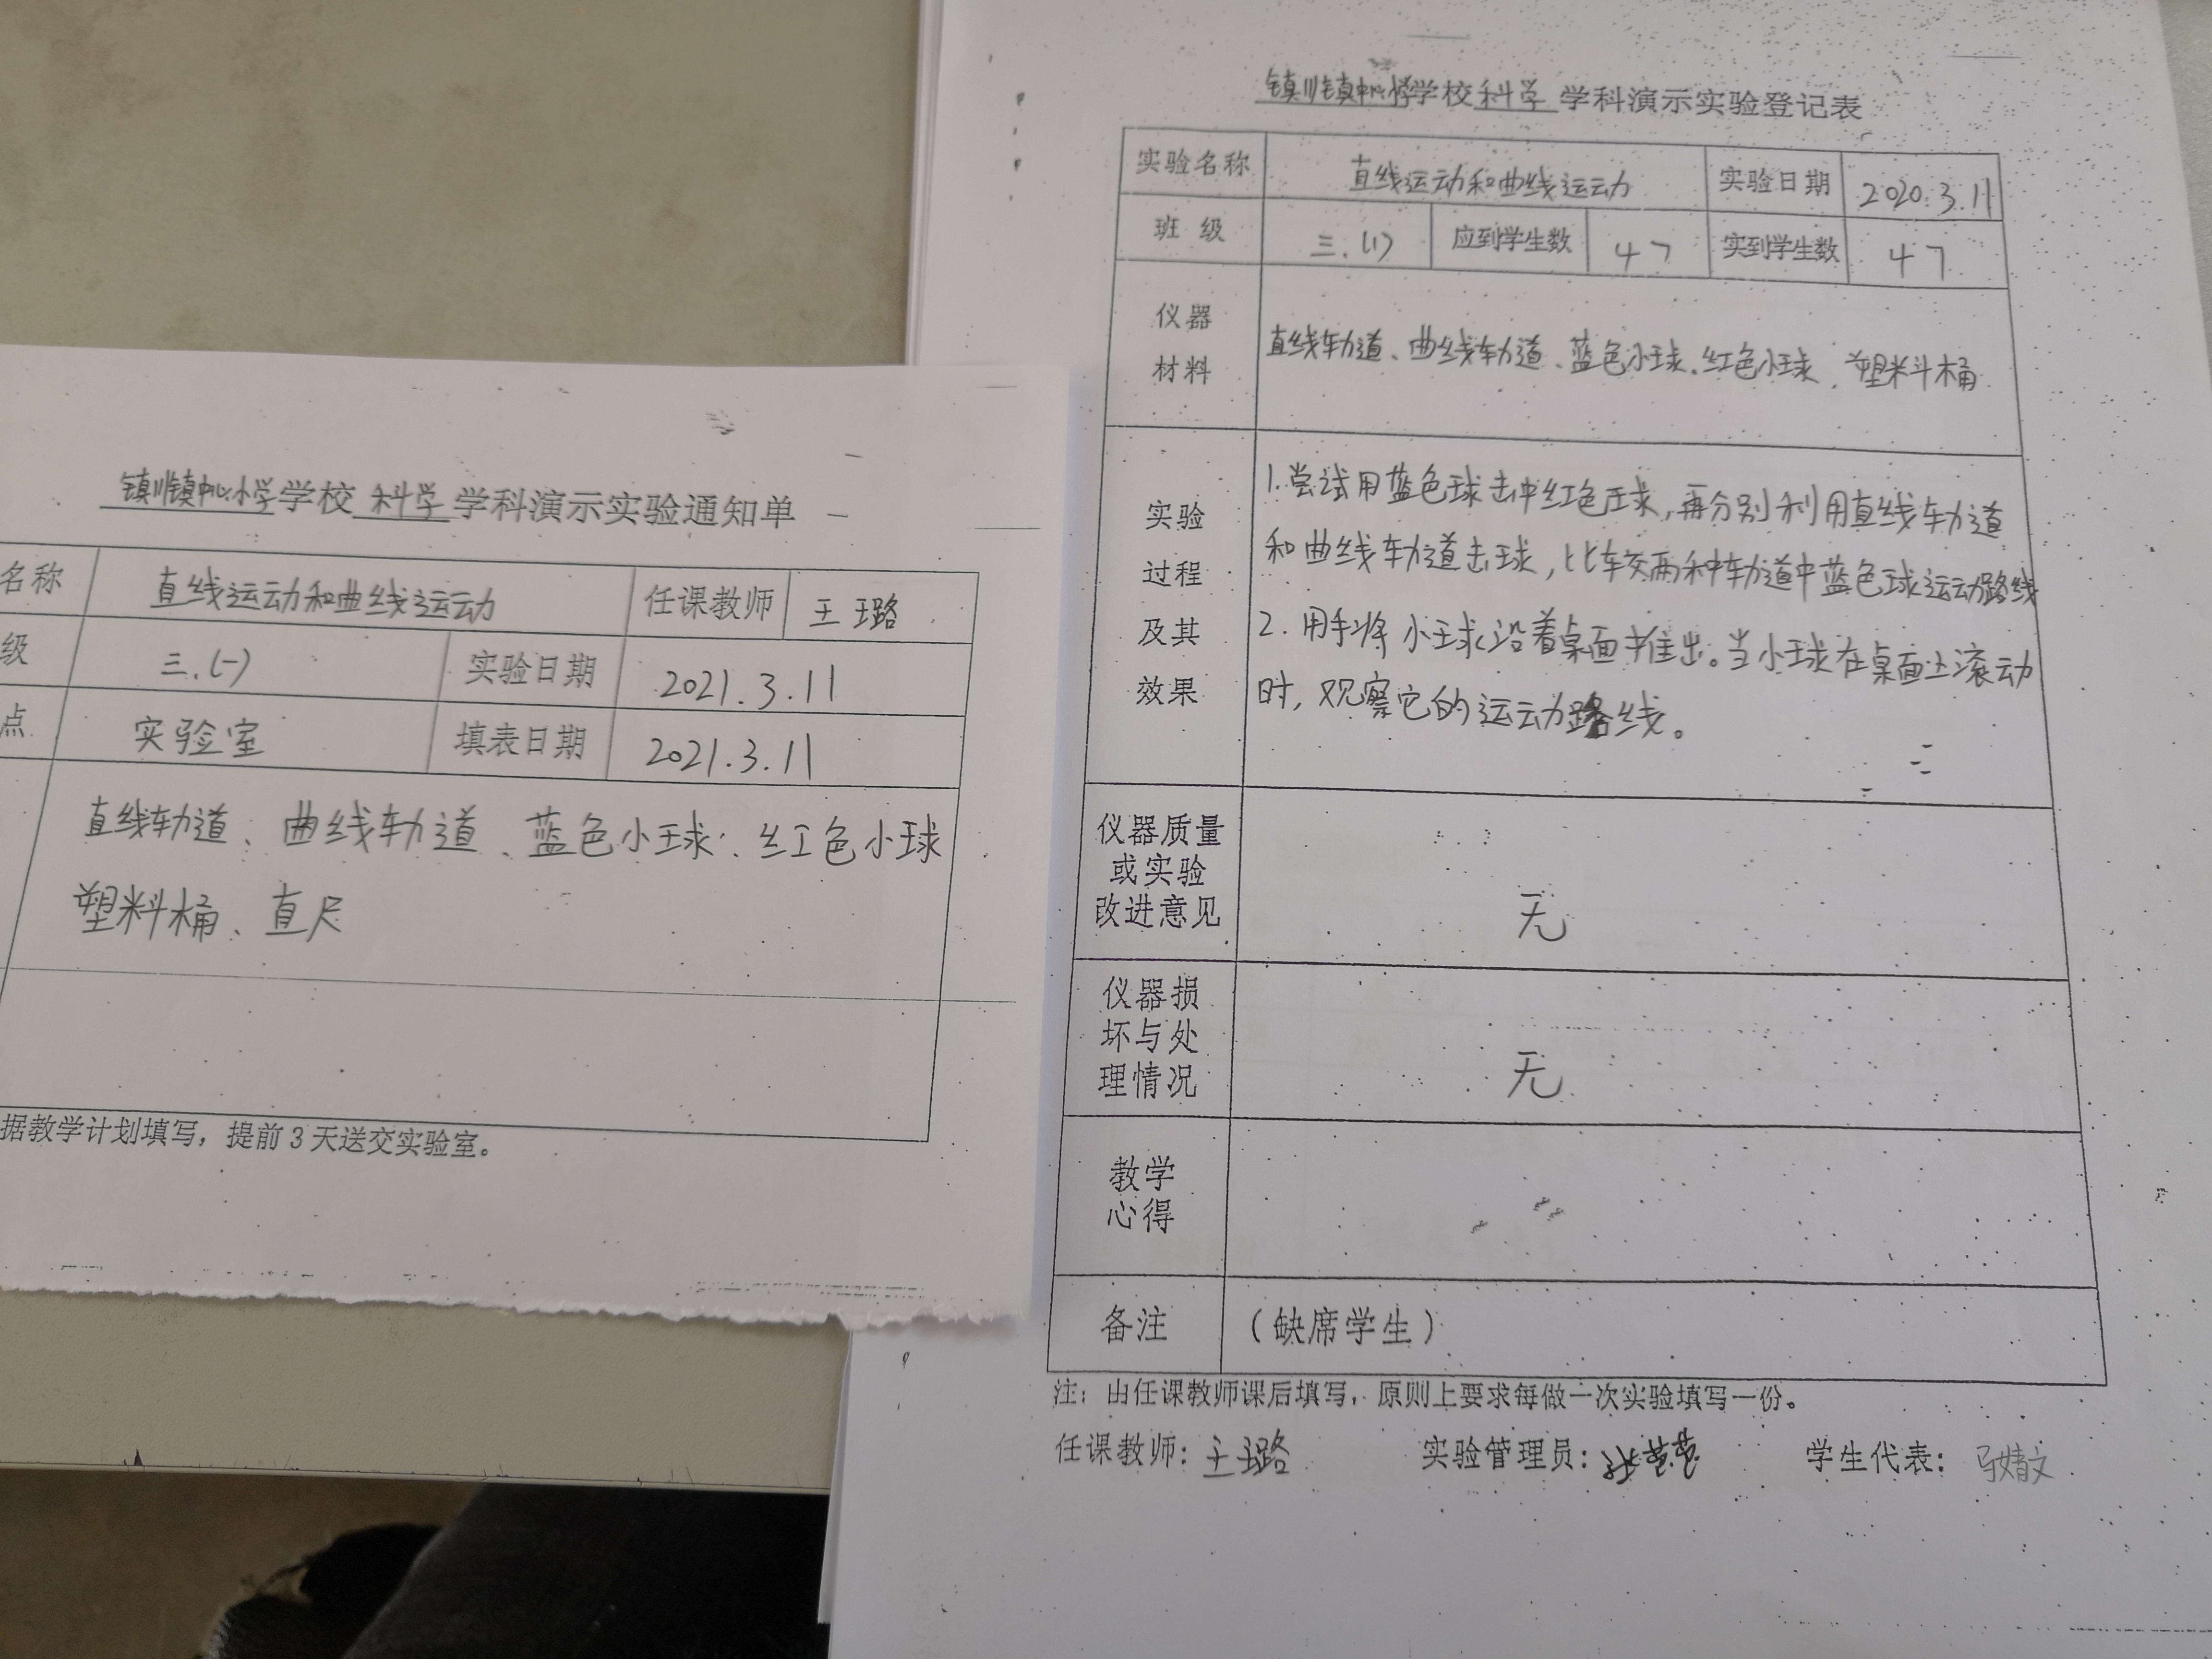 镇川镇中心小学学校 科学 学科演示实验通知单
名称 直线运动和曲线运动 任课教师 王璐
级 三.(一) 实验日期 2021.3.11
点 实验室 填表日期 2021.3.11
直线轨道、曲线轨道、蓝色小球、红色小球
塑料桶、直尺
据教学计划填写，提前3天送交实验室。
镇川镇中心小学学校科学 学科演示实验登记表
实验名称 直线运动和曲线运动 实验日期 2020.3.11
班 级 三.(1) 应到学生数 47 实到学生数 47
仪器
材料
直线轨道、曲线轨道、蓝色小球、红色小球、塑料桶
实验
过程
及其
效果
1.尝试用蓝色球击中红色球，再分别利用直线轨道
和曲线轨道击球，比较两种轨道中蓝色球运动路线
2.用手将小球沿着桌面推出。当小球在桌面上滚动
时，观察它的运动路线。
仪器质量
或实验
改进意见
无
仪器损
坏与处
理情况
无
教学
心得
备注 （缺席学生）
注：由任课教师课后填写，原则上要求每做一次实验填写一份。
任课教师：王璐 实验管理员： 学生代表：马婧文